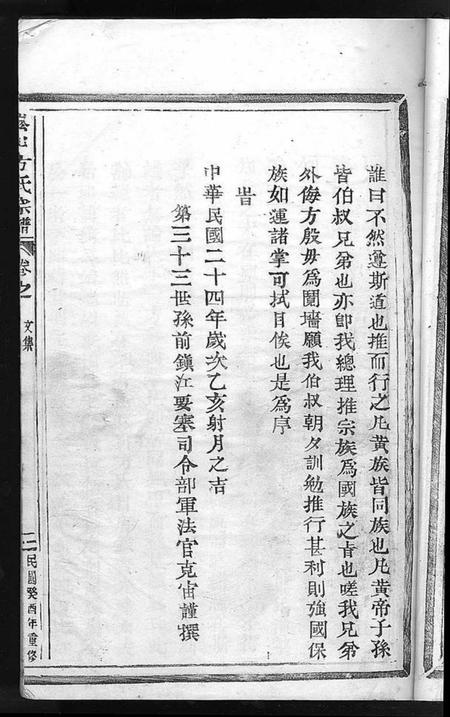 誰曰不然遵斯道也推而行之凡黃族皆同族也凡黃帝子孫
皆伯叔兄弟也亦即我總理推宗族為國族之旨也嗟我兄弟
外侮方殷毋為鬩墻願我伯叔朝夕訓勉推行甚利則強國保
族如運諸掌可拭目俟也是為序
旹
中華民國二十四年歲次乙亥射月之吉
第三十三世孫前鎮江要塞司令部軍法官克宙謹撰
方氏宗譜
卷之
文集
二
民國癸酉年重修